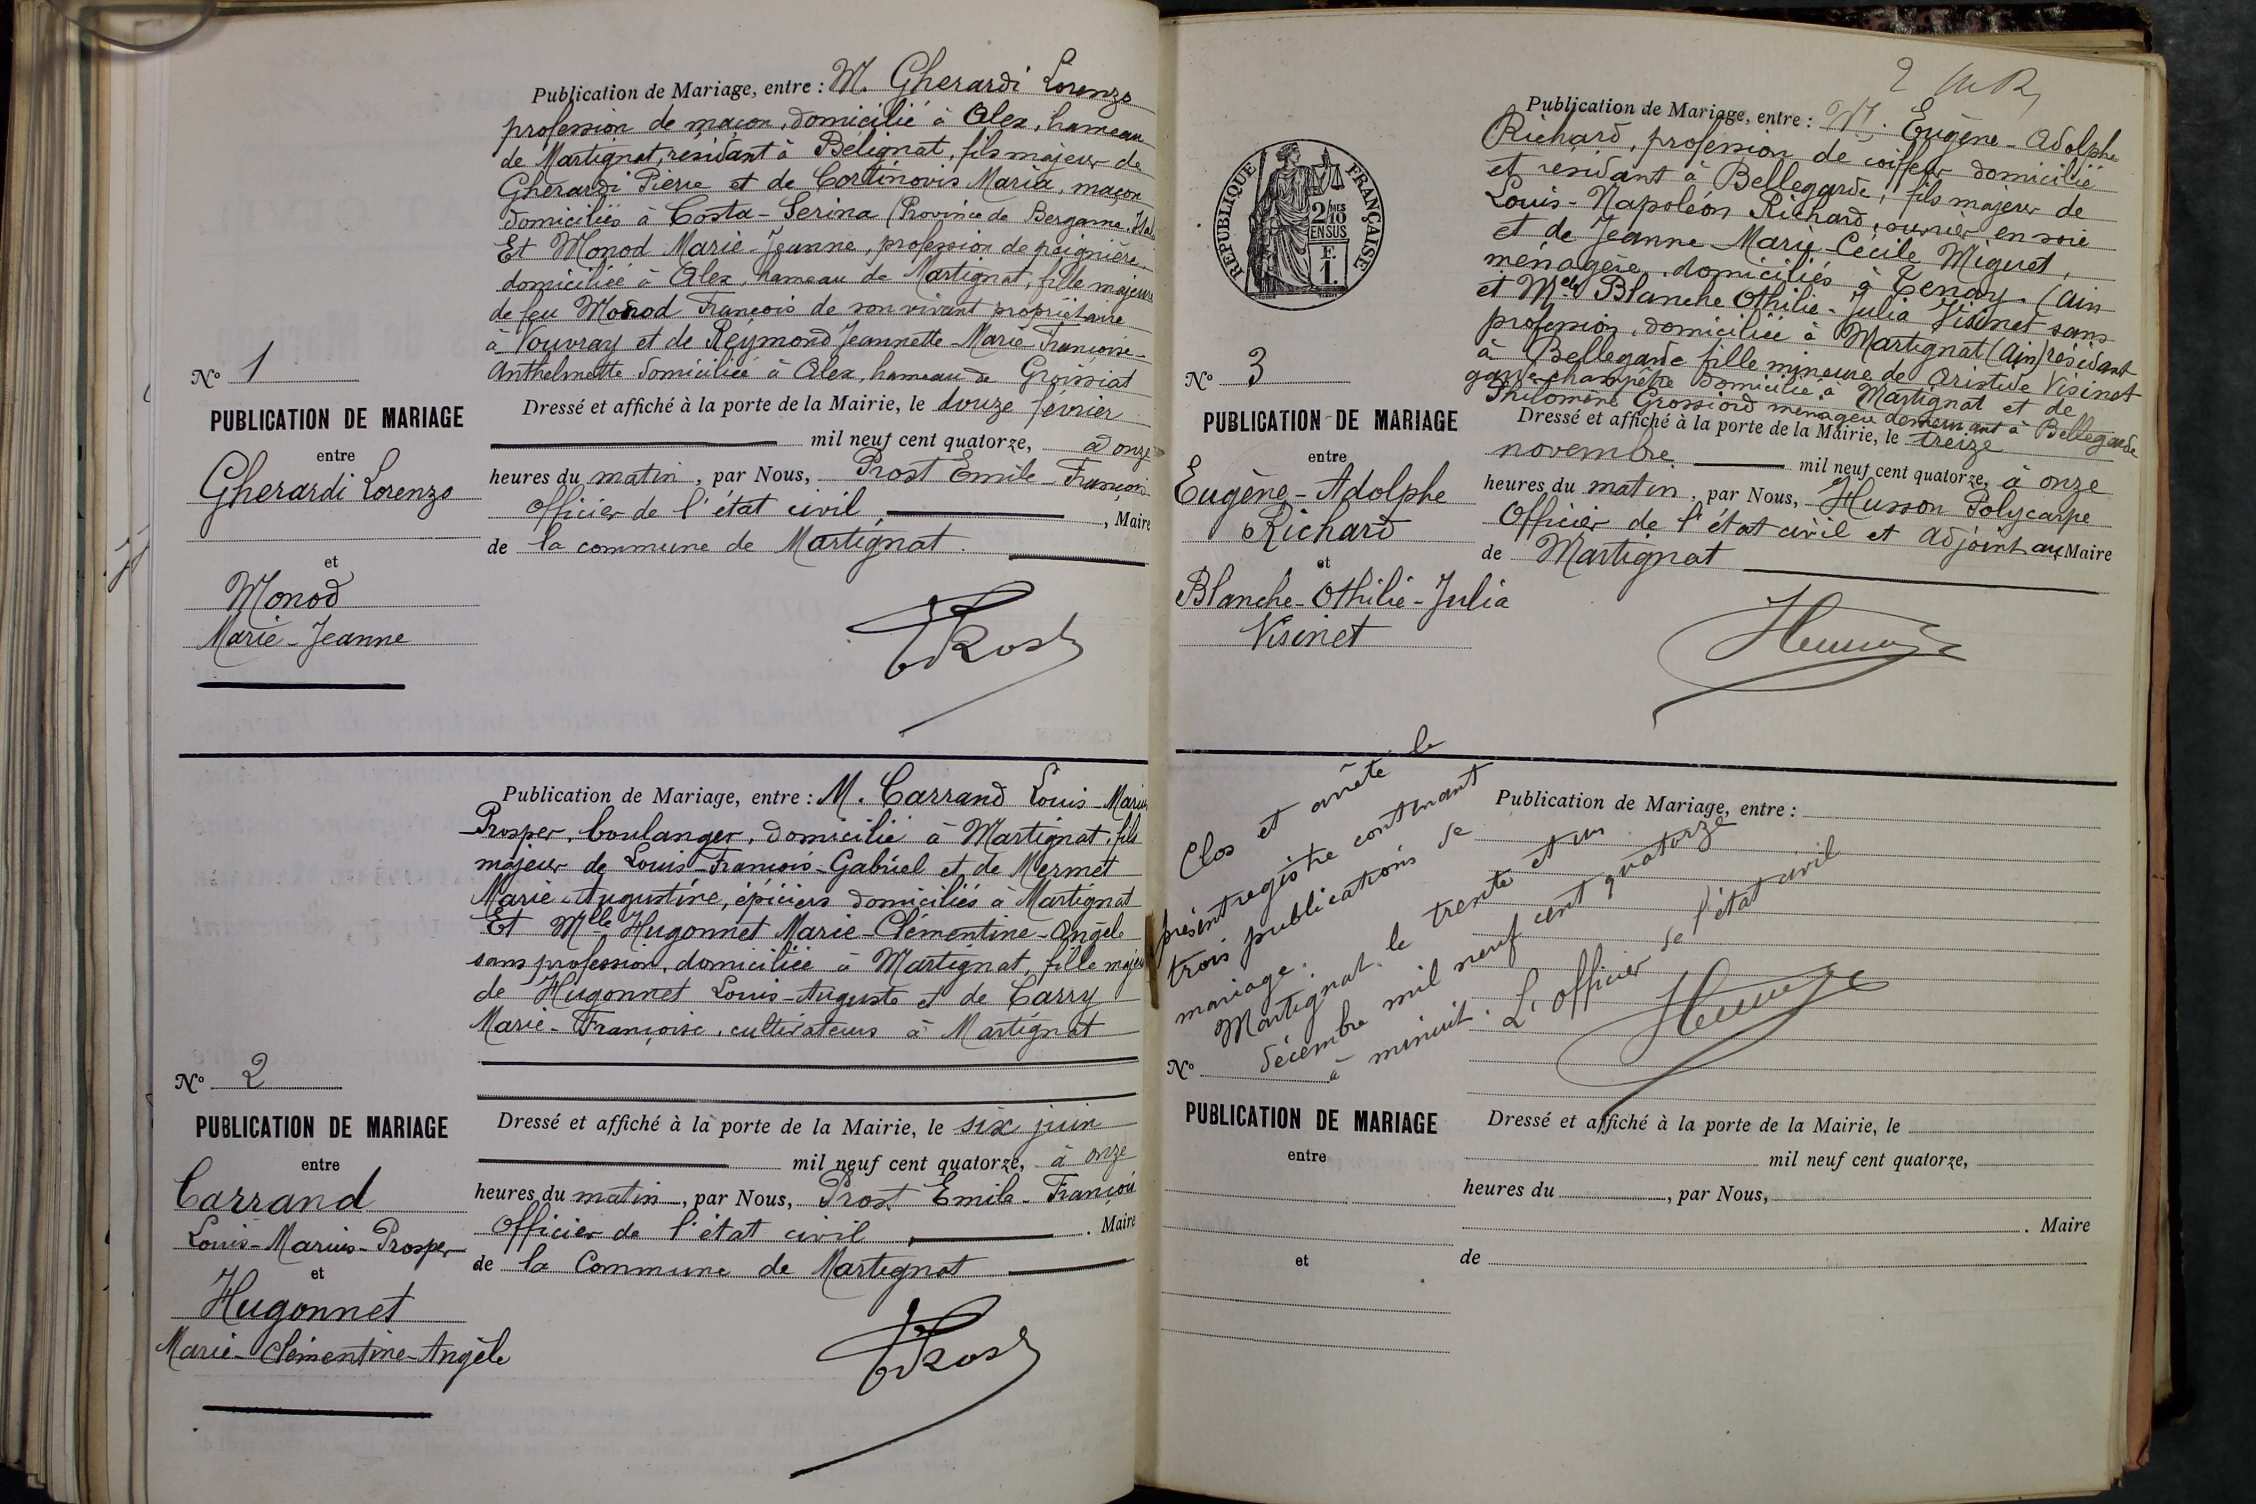 Publication de Mariage, entre : M. Gherardi Lorenzo
profession de maçon, domicilié à Alex, hameau
de Martignat, résidant à Bélignat, fils majeur de
Gherardi Pierre et de Cortinovis Maria, maçon
domiciliés à Costa-Serina (Province de Bergame,
Et Monod Marie-Jeanne, profession de peignière
domiciliée à Alex, hameau de Martignat, fille majeure
de feu Monod François de son vivant propriétaire
à Vouvray et de Reymond Jeannette-Marie-Françoise-
Anthelmette domiciliée à Alex, hameau de Groissiat
Dressé et affiché à la porte de la Mairie, le douze février
mil neuf cent quatorze, à onze
heures du matin, par Nous, Prost Emile-François
Officier de l'état civil, Maire
de la commune de Martignat.
Prost
Nº 1
PUBLICATION DE MARIAGE
entre
Gherardi Lorenzo
et
Monod
Marie-Jeanne
Publication de Mariage, entre : M. Carrand Louis-Marius
Prosper, boulanger, domicilié à Martignat, fils
majeur de Louis-François-Gabriel et de Mermet
Marie-Augustine, épiciers domiciliés à Martignat
Et Mlle Hugonnet Marie-Clémentine-Angèle
sans profession, domiciliée à Martignat, fille majeu
de Hugonnet Louis-Auguste et de Carry
Marie-Françoise, cultivateurs à Martignat
Dressé et affiché à la porte de la Mairie, le six juin
mil neuf cent quatorze, à onze
heures du matin, par Nous, Prost Emile-François
Officier de l'état civil, Maire
de la Commune de Martignat
Prost
Nº 2
PUBLICATION DE MARIAGE
entre
Carrand
Louis-Marius-Prosper
et
Hugonnet
Marie-Clémentine-Angèle
2
RÉPUBLIQUE FRANÇAISE
2/10 EN SUS
F. 1.
Publication de Mariage, entre : M. Eugène-Adolphe
Richard, profession de coiffeur domicilié
et résidant à Bellegarde, fils majeur de
Louis-Napoléon Richard, ouvrier en soie
et de Jeanne-Marie-Cécile Miguet,
ménagère, domiciliés à Tenay. (Ain
et Melle Blanche Othilie-Julia Visinet sans
profession, domiciliée à Martignat (Ain) résidant
à Bellegarde fille mineure de Aristide Visinet
garde-champêtre domicilié à Martignat et de
Philomène Grossiord ménagère demeurant à Bellegarde
Dressé et affiché à la porte de la Mairie, le treize
novembre mil neuf cent quatorze, à onze
heures du matin, par Nous, Husson Polycarpe
Officier de l'état civil et adjoint au Maire
de Martignat
Nº 3
PUBLICATION DE MARIAGE
entre
Eugène-Adolphe
Richard
et
Blanche-Othilie-Julia
Visinet
Clos et arrêté le
présent registre contenant
trois publications de
mariage.
Martignat le trente et un
décembre mil neuf cent quatorze
à minuit. L'officier de l'état civil
Publication de Mariage, entre :
Nº
PUBLICATION DE MARIAGE
entre
et
Dressé et affiché à la porte de la Mairie, le
mil neuf cent quatorze,
heures du , par Nous,
. Maire
de